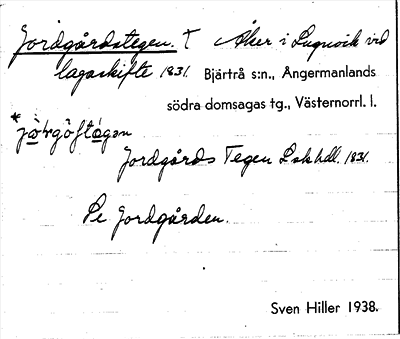 Jordgårdstegen. † Åker i Lugnvik vid
lagaskifte 1831. Bjärtrå s:n., Ångermanlands
södra domsagas tg., Västernorrl. l.
*
Jordgårds Tegen Lskhdl. 1831.
Se Jordgården.
Sven Hiller 1938.